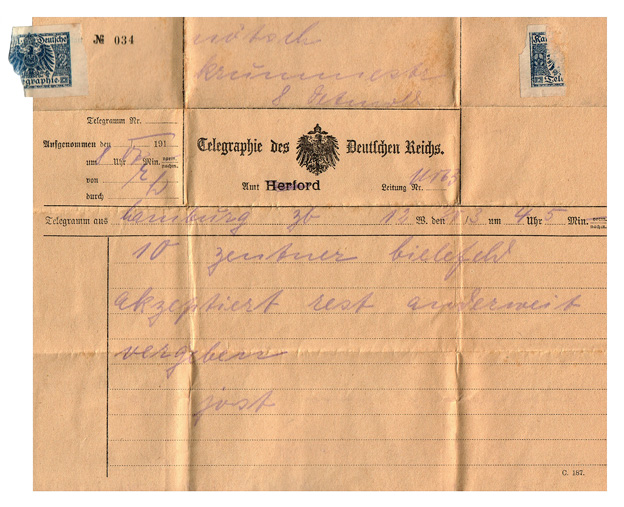 № 034
nötsch
krummestr
8 Detmold
Telegramm Nr.
Aufgenommen den 191
um 8 Uhr Min.
von
durch
Telegraphie des Deutschen Reichs.
Amt Herford Leitung Nr.
Telegramm aus hamburg 36 12 W. den 13 um 4 Uhr 5 Min.
10 zentner bielefeld
akzeptiert rest anderweit
vergeben
jost
C. 187.